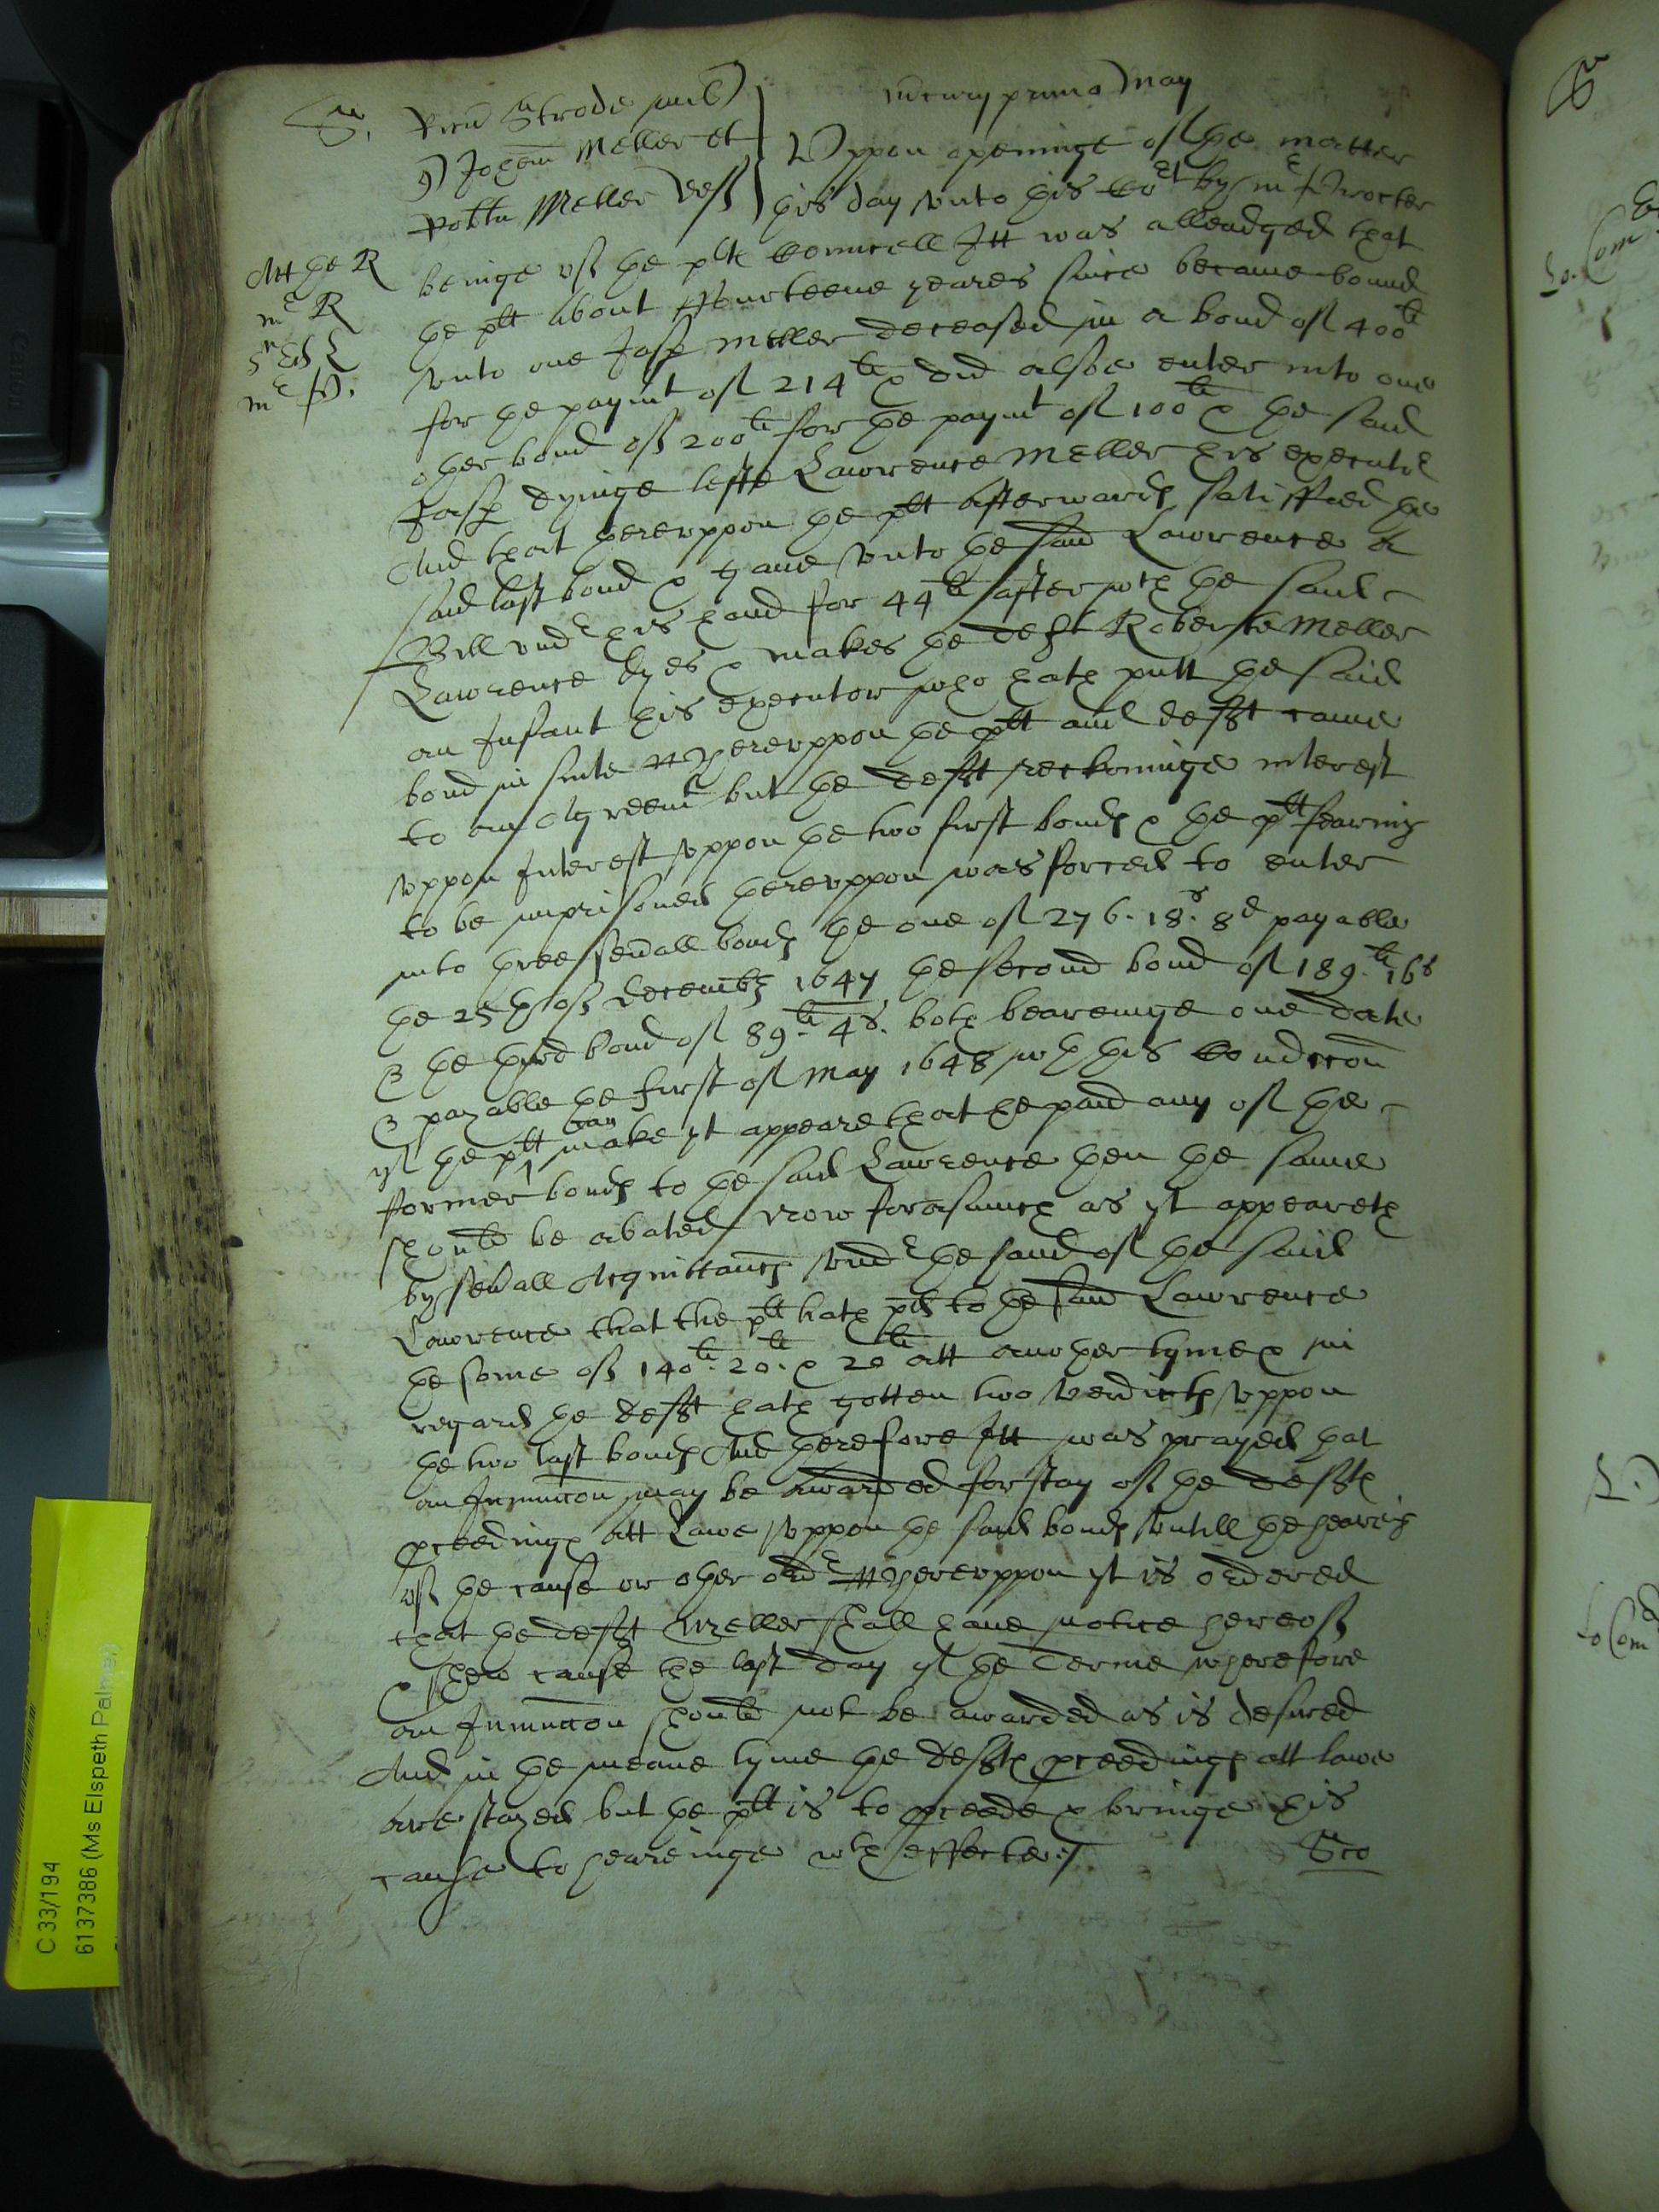 S. Ricu Strode mil
q) Johem Meller et
Robtu Meller deft
mercurij primo May
Uppon openinge of the matter
this day unto this Cort by mr Procter
Att the R
mr R
mr P.
beinge of the plts Councell Itt was alleadged that
the plt about ffourteene yeares since became bound
unto one Jasp Meller deceased in a bond of 400li
for the paymt of 214li & did alsoe enter into one
other bond of 200li for the paymt of 100li & the said
Jasp dyinge lefte Lawrence Meller his executor
And that thereuppon the plt afterwards satisffied the
said last bond & gave unto the said Lawrence a
Bill undr his hand for 44li after wch the said
Lawrence dyes & makes the deft Roberte Meller
an Infant his executor who hath putt the said
bond in suite Whereuppon the plt and deft came
to an Agreemt but the deft reckoninge interest
uppon Interest uppon the two first bonds & the plt fearing
to be imprisoned thereuppon was forced to enter
into three severall bonds the one of 276. 18s. 8d payable
the 25th of decembr 1647 the second bond of 189.li 16s
& the third bond of 89li. 4s. both beareinge one date
& payable the first of May 1648 wth this Condicon
yf the plt can make yt appeare that he paid any of the
former bonds to the said Lawrence then the same
should be abated Now forasmuch as yt appeareth
by severall Acquittances undr the hand of the said
Lawrence that the plt hath pd to the said Lawrence
the some of 140li. 20li. & 20li att another tyme & in
regard the deft hath gotten two verdicts uppon
the two last bonds And therefore Itt was prayed that
an Iniunccon may be awarded for stay of the defts
pceedings att Lawe uppon the said bonds untill the hearing
of the cause or other ordr Whereuppon yt is ordered
that the deft Meller shall have notice hereof
& shew cause the last day of the Terme wherefore
an Iniunccon should not be awarded as is desired
And in the meane tyme the defts pceedings att lawe
are stayed but the plt is to pceede & bringe his
cause to heareinge wth effecte
Sro
C 33/194
6137386 (Ms Elspeth Palmer)
CANON